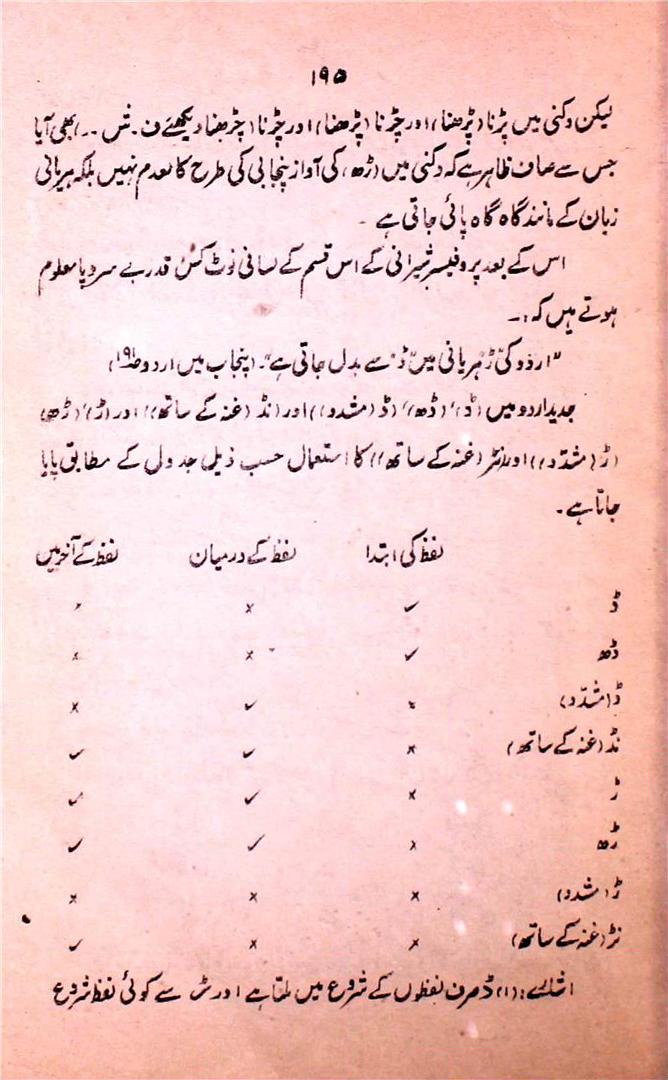 ۱۹۵
لیکن دکنی میں پڑنا (پڑھنا) اور چڑنا (پڑھنا) اور چڑنا (چڑھنا دیکھئے ف۔ نس ۔۔) بھی آیا
جس سے صاف ظاہر ہے کہ دکنی میں (ڑھ) کی آواز پنجابی کی طرح کالعدم نہیں بلکہ ہریانی
زبان کے مانند گاہ گاہ پائی جاتی ہے ۔
اس کے بعد پروفیسر شیرانی کے اس قسم کے لسانی نوٹ کس قدر بے سروپا معلوم
ہوتے ہیں کہ:۔
"اردو کی ڑ ہریانی میں "ڈ" سے بدل جاتی ہے"۔ (پنجاب میں اردو ص۱۹۱)
جدید اردو میں (ڈ) ’(ڈھ)‘ (ڈ (مشدد)) اور (نڈ (غنہ کے ساتھ)) اور (ڑ) ’(ڑھ)
(ڑ (مشدّد)) اور (نڑ (غنہ کے ساتھ)) کا استعمال حسب ذیل جدول کے مطابق پایا
جاتا ہے۔
لفظ کی ابتدا لفظ کے درمیان لفظ کے آخر میں
ڈ ✓ × ×
ڈھ ✓ × ×
ڈ (مشدّد) × ✓ ×
نڈ (غنہ کے ساتھ) × ✓ ✓
ڑ × ✓ ✓
ڑھ × ✓ ✓
ڑ (مشدد) × × ×
نڑ (غنہ کے ساتھ) × × ✓
امثلہ: (۱) ڈ صرف لفظوں کے شروع میں ملتا ہے اور ڑ سے کوئی لفظ شروع